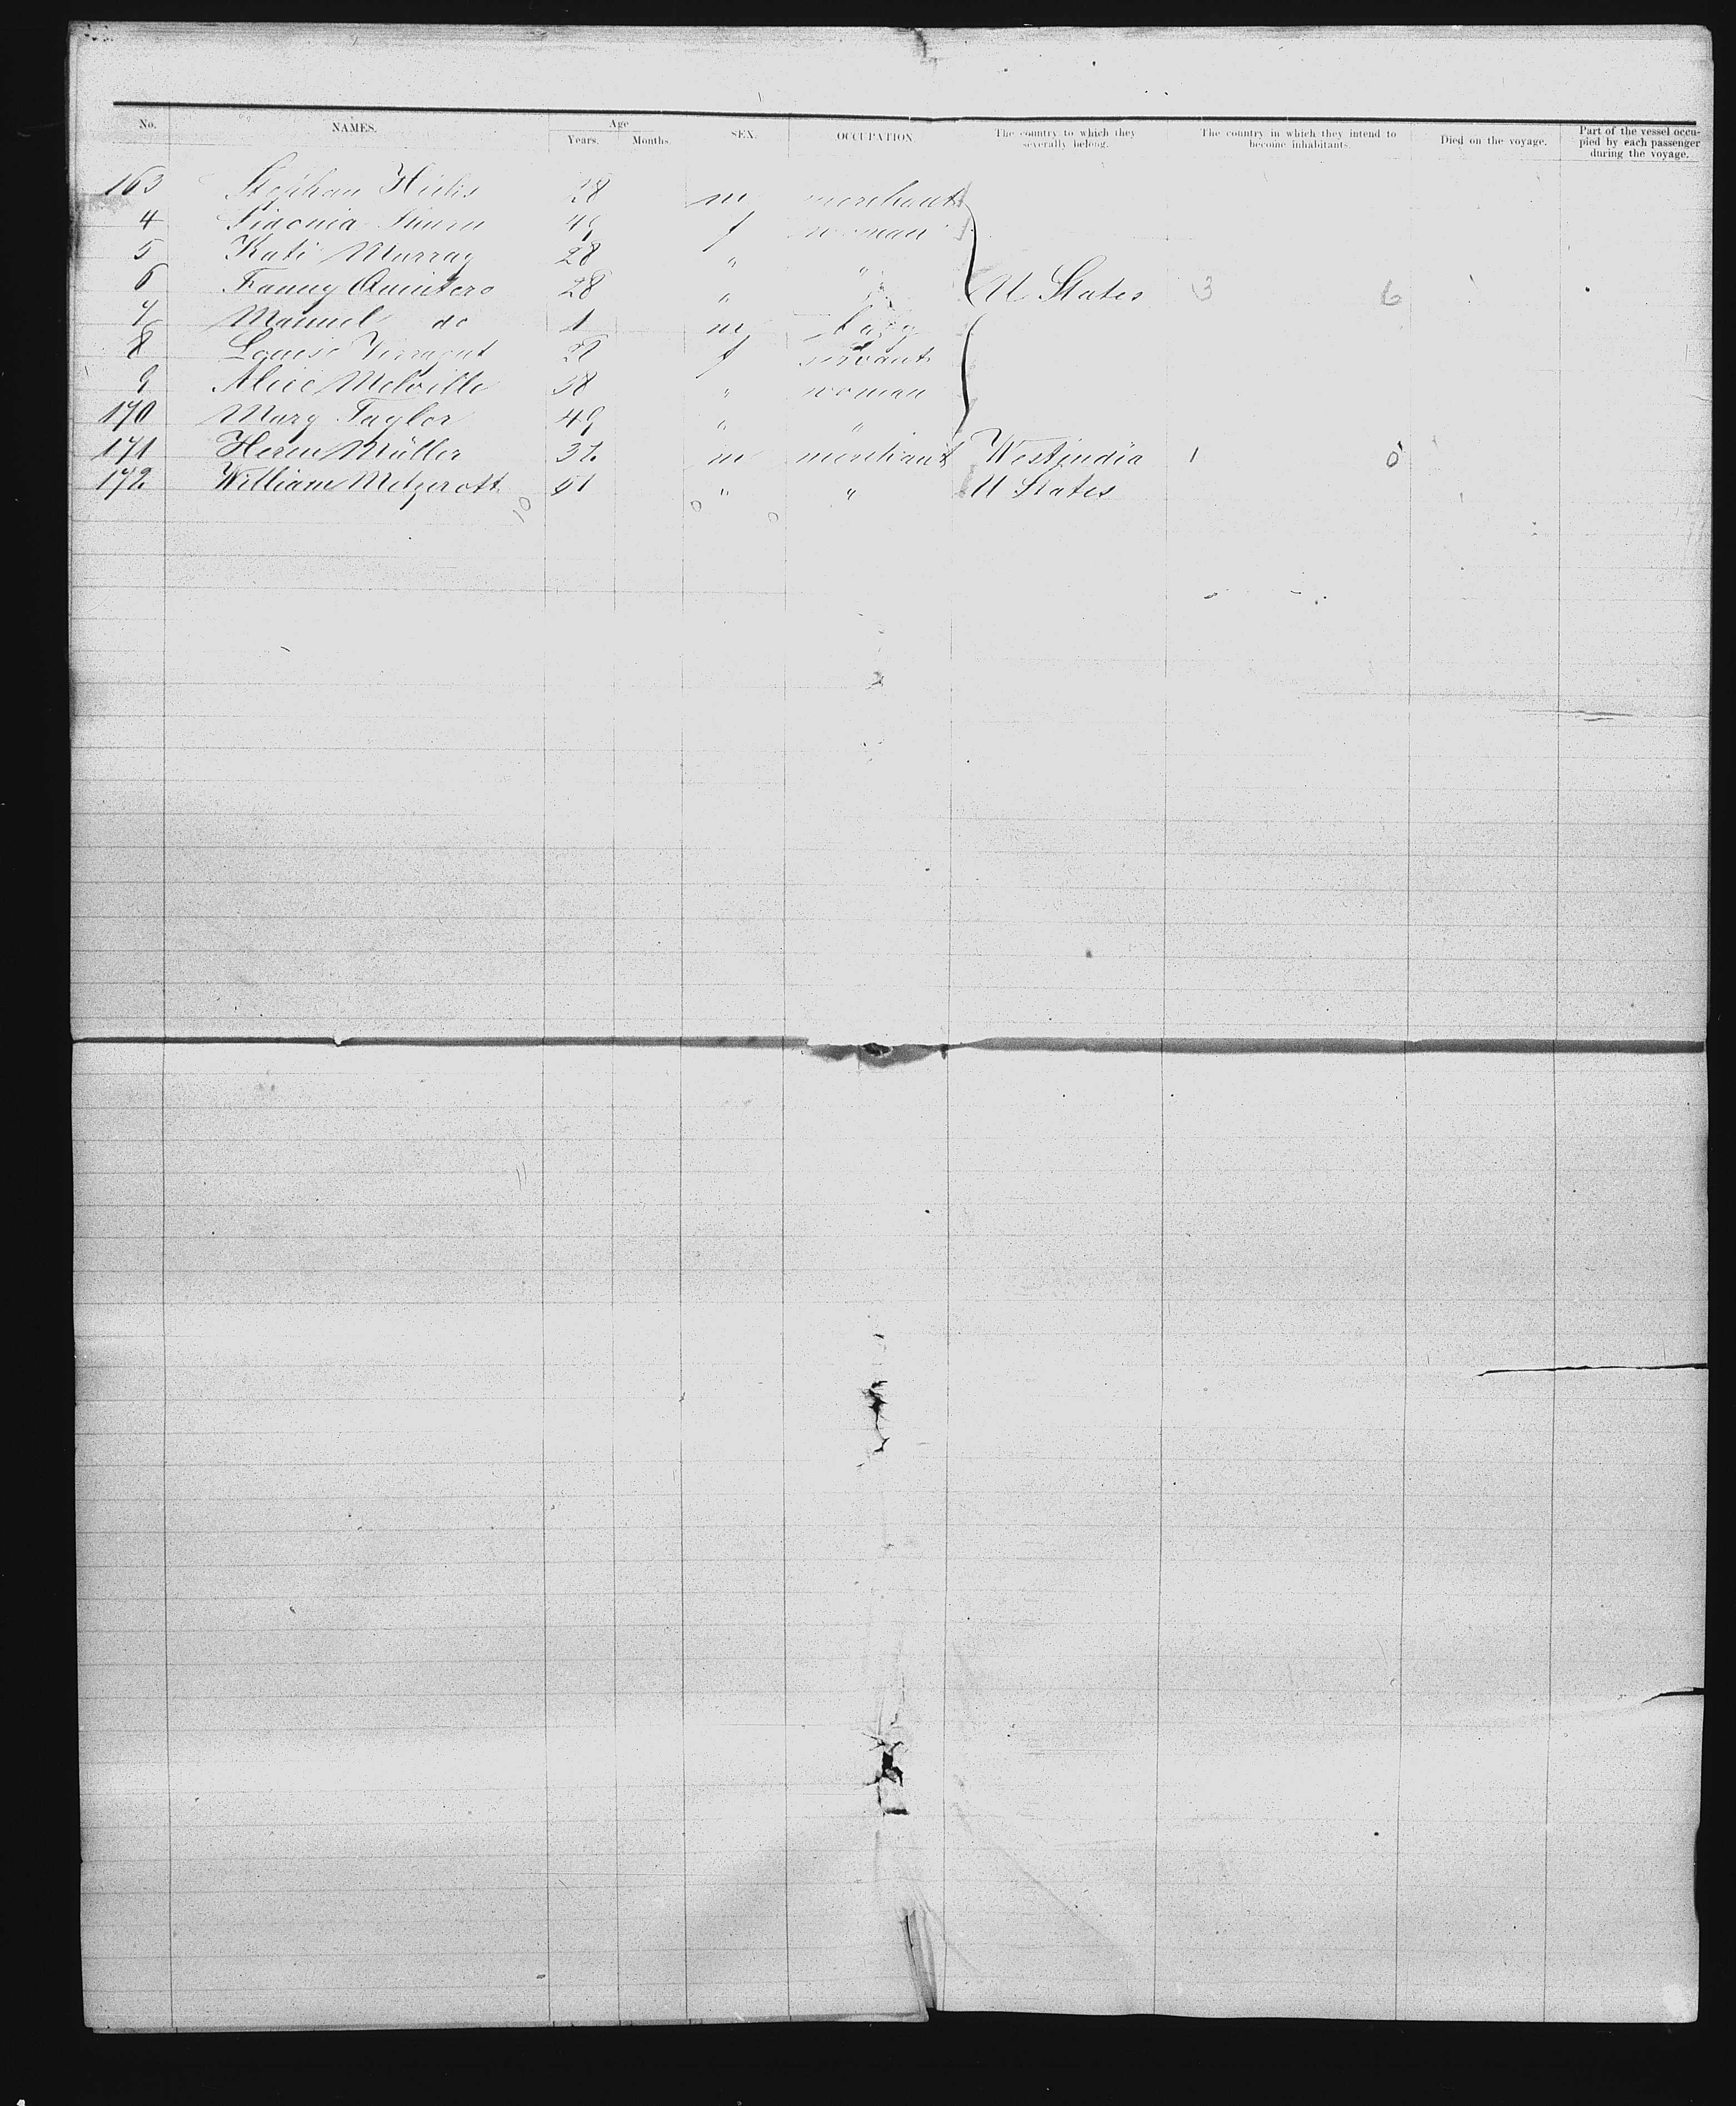 No. NAMES. Age Years. Months. SEX. OCCUPATION. The country to which they severally belong. The country in which they intend to become inhabitants. Died on the voyage. Part of the vessel occupied by each passenger during the voyage.
163 Stephan 28 m merchant
4 Sidonia 49 f woman
5 Kati Murray 28 " "
6 Fanny Quintero 28 " " U States 3 6
7 Manuel do 1 m baby
8 Louise 28 f servant
9 Alice Melville 38 " woman
170 Mary Taylor 49 " "
171 Herm Müller 32 m merchant Westindia 1 0
172 William Metzerott 51 " " U States
10 0 0